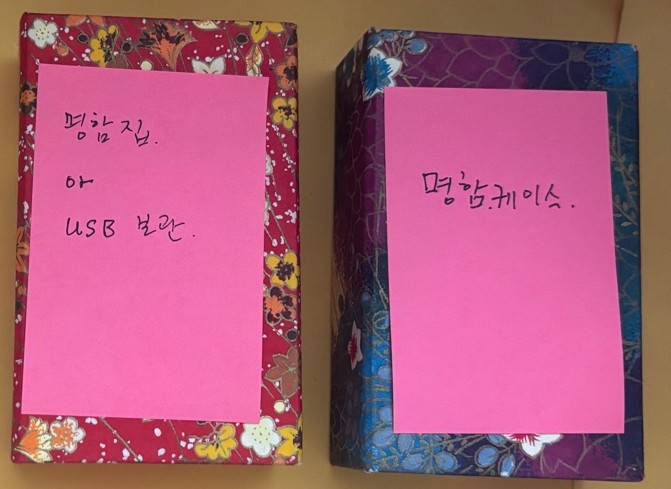 명함집.
아
USB 보관.
명함.케이스.